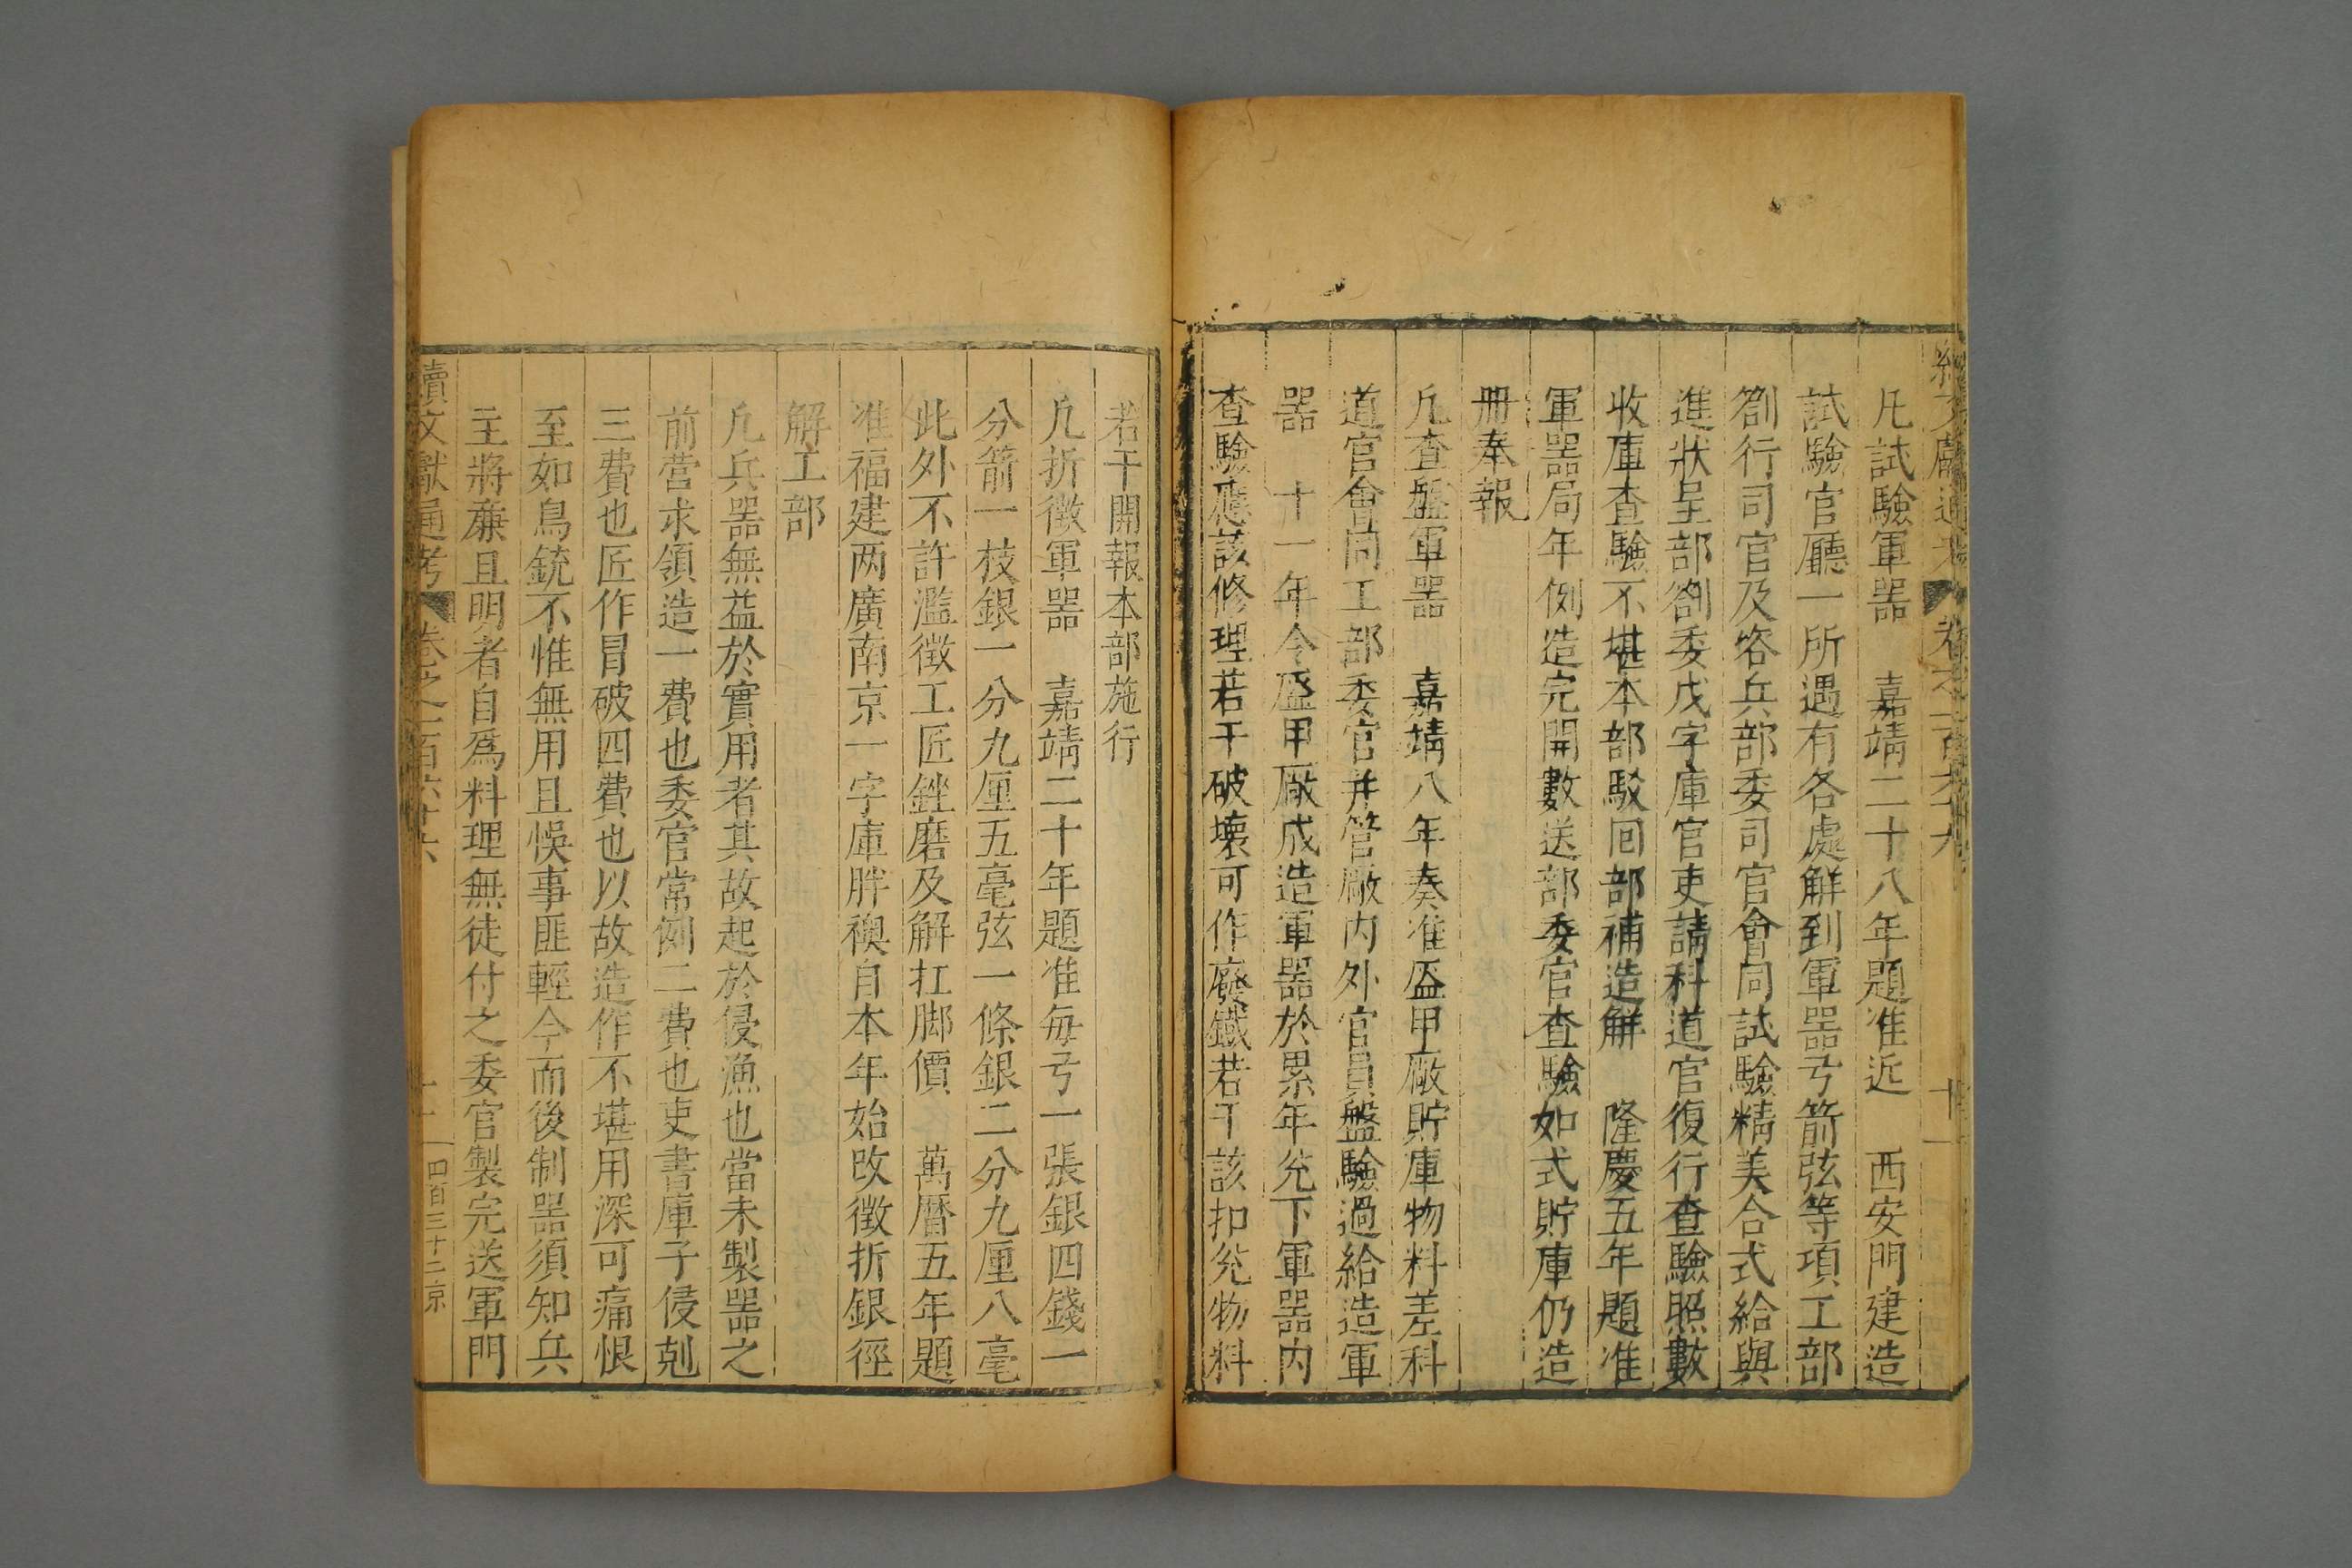 續文獻通考 卷之一百六十六 十一
凡試驗軍器 嘉靖二十八年題准近 西安門建造
試驗官廳一所遇有各處解到軍器弓箭弦等項工部
劄行司官及咨兵部委司官會同試驗精美合式給與
進狀呈部劄委戊字庫官吏請科道官復行查驗照數
收庫查驗不堪本部駁回部補造解 隆慶五年題准
軍器局年例造完開數送部委官查驗如式貯庫仍造
冊奉報
凡查盤軍器 嘉靖八年奏准盔甲廠貯庫物料差科
道官會同工部委官并管廠内外官員盤驗過給造軍
器 十一年令盔甲廠成造軍器於累年兊下軍器内
查驗應該修理若干破壊可作廢鐵若干該扣兊物料
若干開報本部施行
凡折徵軍器 嘉靖二十年題准每弓一張銀四錢一
分箭一枝銀一分九厘五毫弦一條銀二分九厘八毫
此外不許濫徴工匠銼磨及解扛脚價 萬曆五年題
准福建两廣南京一字庫胖襖自本年始改徴折銀徑
解工部
凡兵器無益於實用者其故起於侵漁也當未製器之
前营求領造一費也委官常例二費也吏書庫子侵剋
三費也匠作冒破四費也以故造作不堪用深可痛恨
至如鳥銃不惟無用且悞事匪輕今而後制器須知兵
主將亷且明者自爲料理無徒付之委官製完送軍門
續文獻通考 卷之一百六十六 十一 四百三十二京